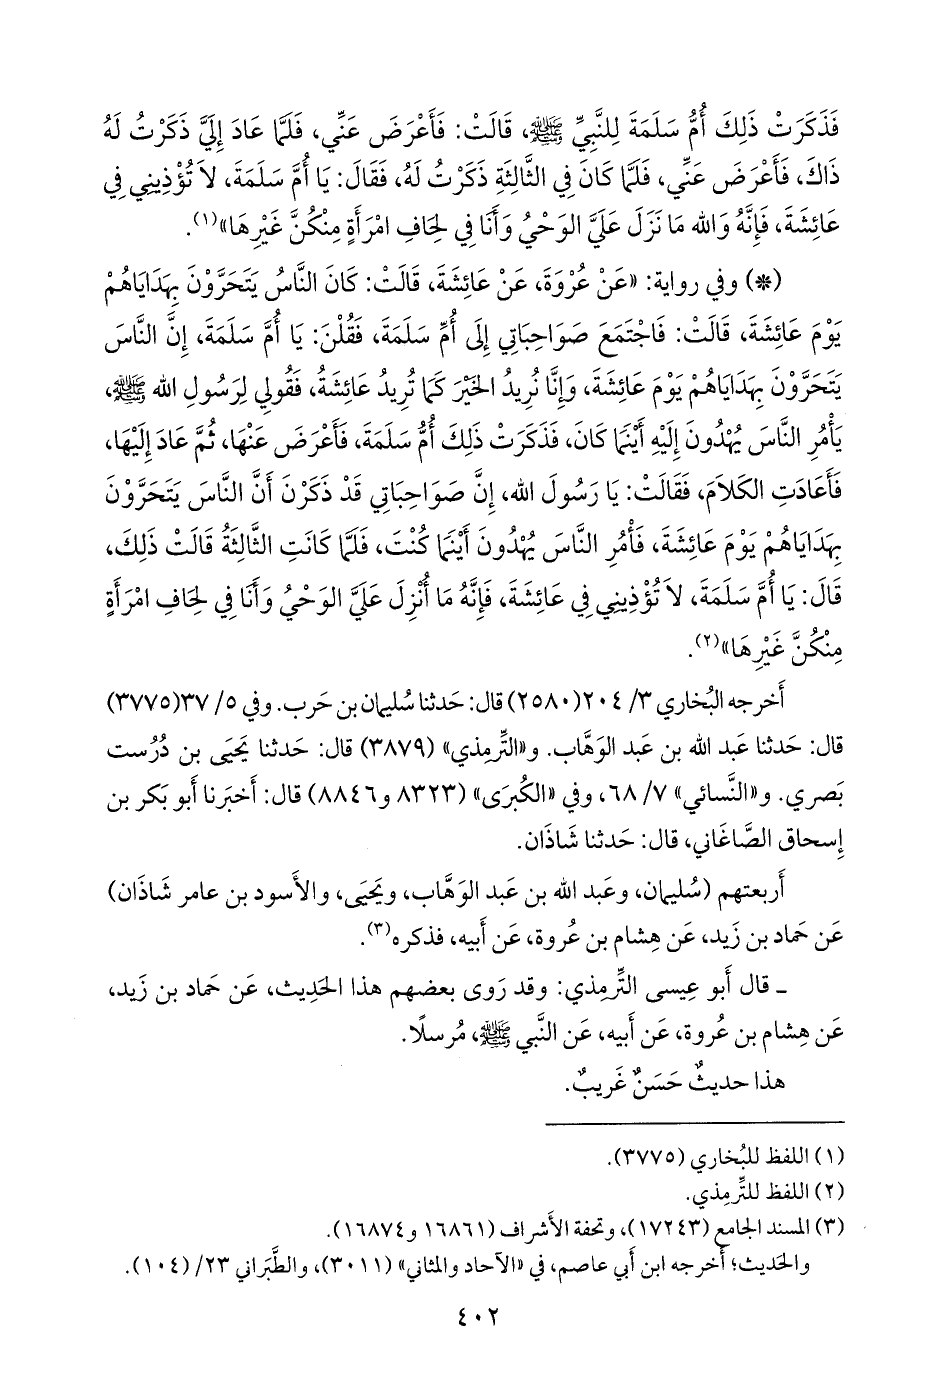 فَذَكَرَتْ ذَلِكَ أُمُّ سَلَمَةَ لِلنَّبِيِّ ﷺ، قَالَتْ: فَأَعْرَضَ عَنِّي، فَلَمَّا عَادَ إِلَيَّ ذَكَرْتُ لَهُ
ذَاكَ، فَأَعْرَضَ عَنِّي، فَلَمَّا كَانَ فِي الثَّالِثَةِ ذَكَرْتُ لَهُ، فَقَالَ: يَا أُمَّ سَلَمَةَ، لَا تُؤْذِينِي فِي
عَائِشَةَ، فَإِنَّهُ وَاللهِ مَا نَزَلَ عَلَيَّ الوَحْيُ وَأَنَا فِي لِحَافِ امْرَأَةٍ مِنْكُنَّ غَيْرِهَا»(١).
(*) وفي رواية: «عَنْ عُرْوَةَ، عَنْ عَائِشَةَ، قَالَتْ: كَانَ النَّاسُ يَتَحَرَّوْنَ بِهَدَايَاهُمْ
يَوْمَ عَائِشَةَ، قَالَتْ: فَاجْتَمَعَ صَوَاحِبَاتِي إِلَى أُمِّ سَلَمَةَ، فَقُلْنَ: يَا أُمَّ سَلَمَةَ، إِنَّ النَّاسَ
يَتَحَرَّوْنَ بِهَدَايَاهُمْ يَوْمَ عَائِشَةَ، وَإِنَّا نُرِيدُ الخَيْرَ كَمَا تُرِيدُ عَائِشَةُ، فَقُولِي لِرَسُولِ اللهِ ﷺ،
يَأْمُرِ النَّاسَ يُهْدُونَ إِلَيْهِ أَيْنَمَا كَانَ، فَذَكَرَتْ ذَلِكَ أُمُّ سَلَمَةَ، فَأَعْرَضَ عَنْهَا، ثُمَّ عَادَ إِلَيْهَا،
فَأَعَادَتِ الكَلَامَ، فَقَالَتْ: يَا رَسُولَ اللهِ، إِنَّ صَوَاحِبَاتِي قَدْ ذَكَرْنَ أَنَّ النَّاسَ يَتَحَرَّوْنَ
بِهَدَايَاهُمْ يَوْمَ عَائِشَةَ، فَأْمُرِ النَّاسَ يُهْدُونَ أَيْنَمَا كُنْتَ، فَلَمَّا كَانَتِ الثَّالِثَةُ قَالَتْ ذَلِكَ،
قَالَ: يَا أُمَّ سَلَمَةَ، لَا تُؤْذِينِي فِي عَائِشَةَ، فَإِنَّهُ مَا أُنْزِلَ عَلَيَّ الوَحْيُ وَأَنَا فِي لِحَافِ امْرَأَةٍ
مِنْكُنَّ غَيْرِهَا»(٢).
أَخرجه البُخاري ٣/ ٢٠٤(٢٥٨٠) قال: حَدثنا سُليمان بن حَرب. وفي ٥/ ٣٧(٣٧٧٥)
قال: حَدثنا عَبد الله بن عَبد الوَهَّاب. و«التِّرمِذي» (٣٨٧٩) قال: حَدثنا يَحيَى بن دُرُست
بَصري. و«النَّسائي» ٧/ ٦٨، وفي «الكُبرَى» (٨٣٢٣ و٨٨٤٦) قال: أَخبَرنا أَبو بَكر بن
إِسحاق الصَّاغَاني، قال: حَدثنا شَاذَان.
أَربعتهم (سُليمان، وعَبد الله بن عَبد الوَهَّاب، ويَحيَى، والأَسود بن عامر شَاذَان)
عَن حَماد بن زَيد، عَن هِشام بن عُروة، عَن أَبيه، فذكره(٣).
ـ قال أَبو عِيسى التِّرمِذي: وقد رَوى بعضهم هذا الحَدِيث، عَن حَماد بن زَيد،
عَن هِشام بن عُروة، عَن أَبيه، عَن النَّبي ﷺ، مُرسلًا.
هذا حديثٌ حَسَنٌ غَريبٌ.
(١) اللفظ للبُخاري (٣٧٧٥).
(٢) اللفظ للتِّرمِذي.
(٣) المسند الجامع (١٧٢٤٣)، وتحفة الأَشراف (١٦٨٦١ و١٦٨٧٤).
والحَديث؛ أَخرجه ابن أَبي عاصم، في «الآحاد والمثاني» (٣٠١١)، والطَّبَراني ٢٣/ (١٠٤).
٤٠٢